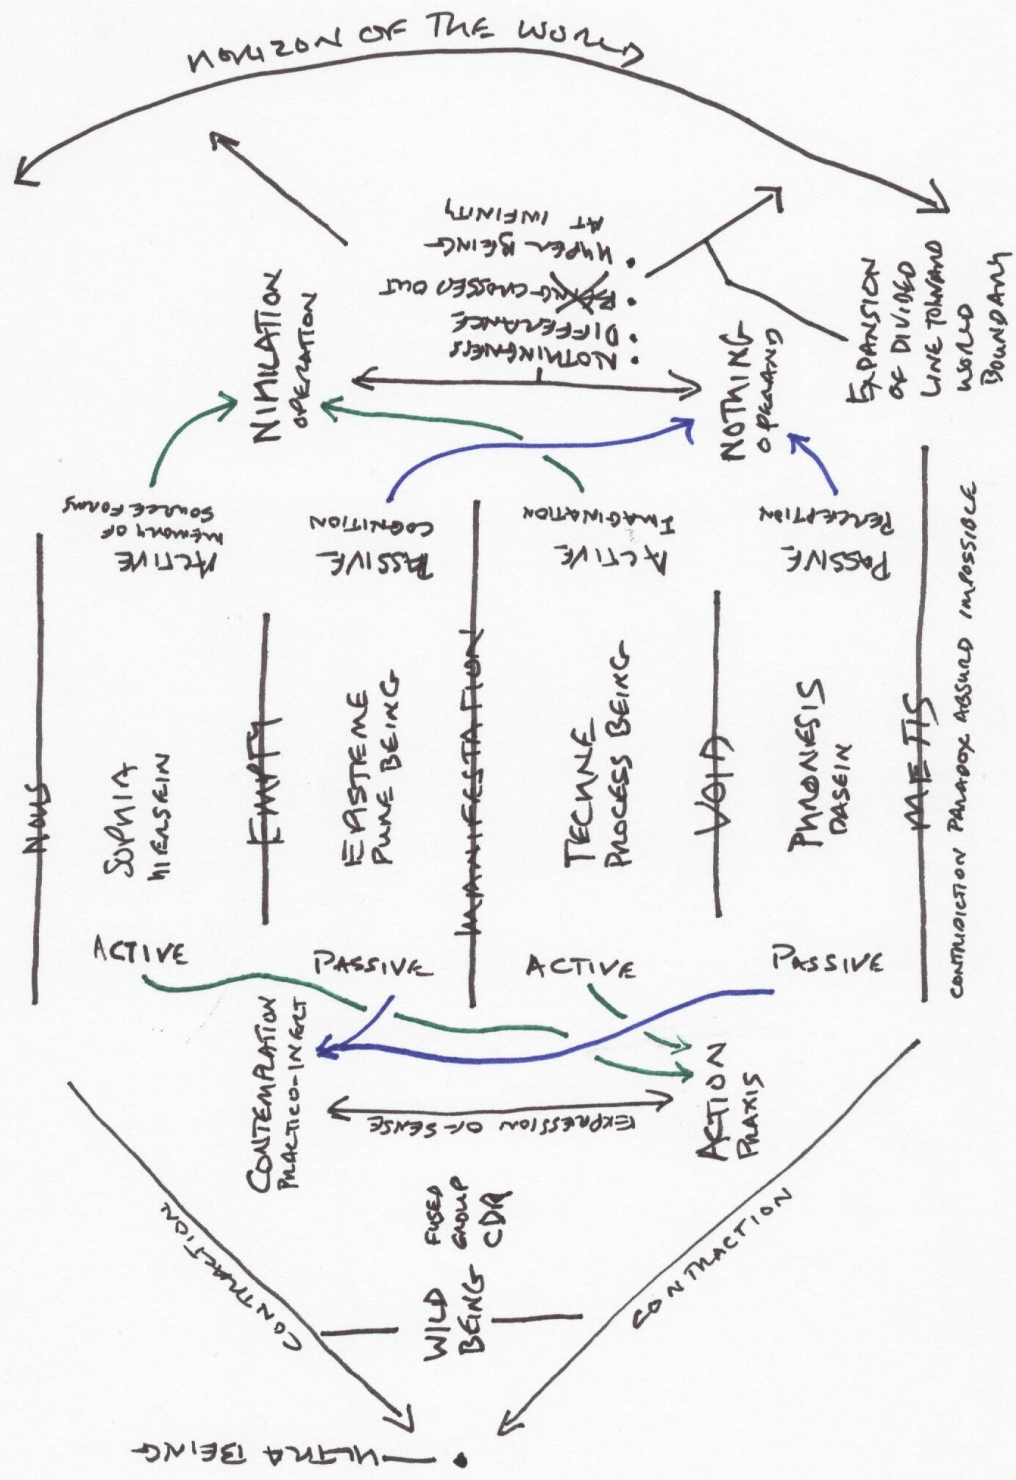 HORIZON OF THE WORLD
• NOTHINGNESS
• DIFFERANCE
• BEING CROSSED OUT
• HYPER BEING
AT INFINITY
NIHILATION
OPERATION
NOTHING
OPERAND
EXPANSION
OF DIVIDED
LINE TOWARD
WORLD
BOUNDARY
ACTIVE
MEMORY OF
SOURCE FORMS
PASSIVE
COGNITION
ACTIVE
IMAGINATION
PASSIVE
PERCEPTION
NOUS
SOPHIA
HIERSEIN
EMPTY
EPISTEME
PURE BEING
MANIFESTATION
TECHNE
PROCESS BEING
VOID
PHRONESIS
DASEIN
METIS
CONTRADICTION PARADOX ABSURD IMPOSSIBLE
ACTIVE
PASSIVE
ACTIVE
PASSIVE
CONTEMPLATION
PRACTICO-INERT
EXPRESSION OF SENSE
ACTION
PRAXIS
CONTRACTION
FUSED
GROUP
WILD
BEING
CONTRACTION
• ULTRA BEING